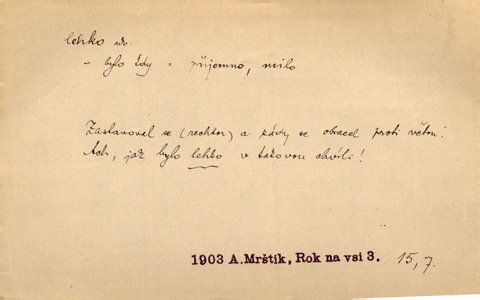 lehko adv.
- bylo kdy = příjemno, milo
Zastavoval se (rechtor) a vždy se obracel proti větru:
Ach, jak bylo lehko v takovou chvíli!
1903 A. Mrštík, Rok na vsi 3. 15, 7.